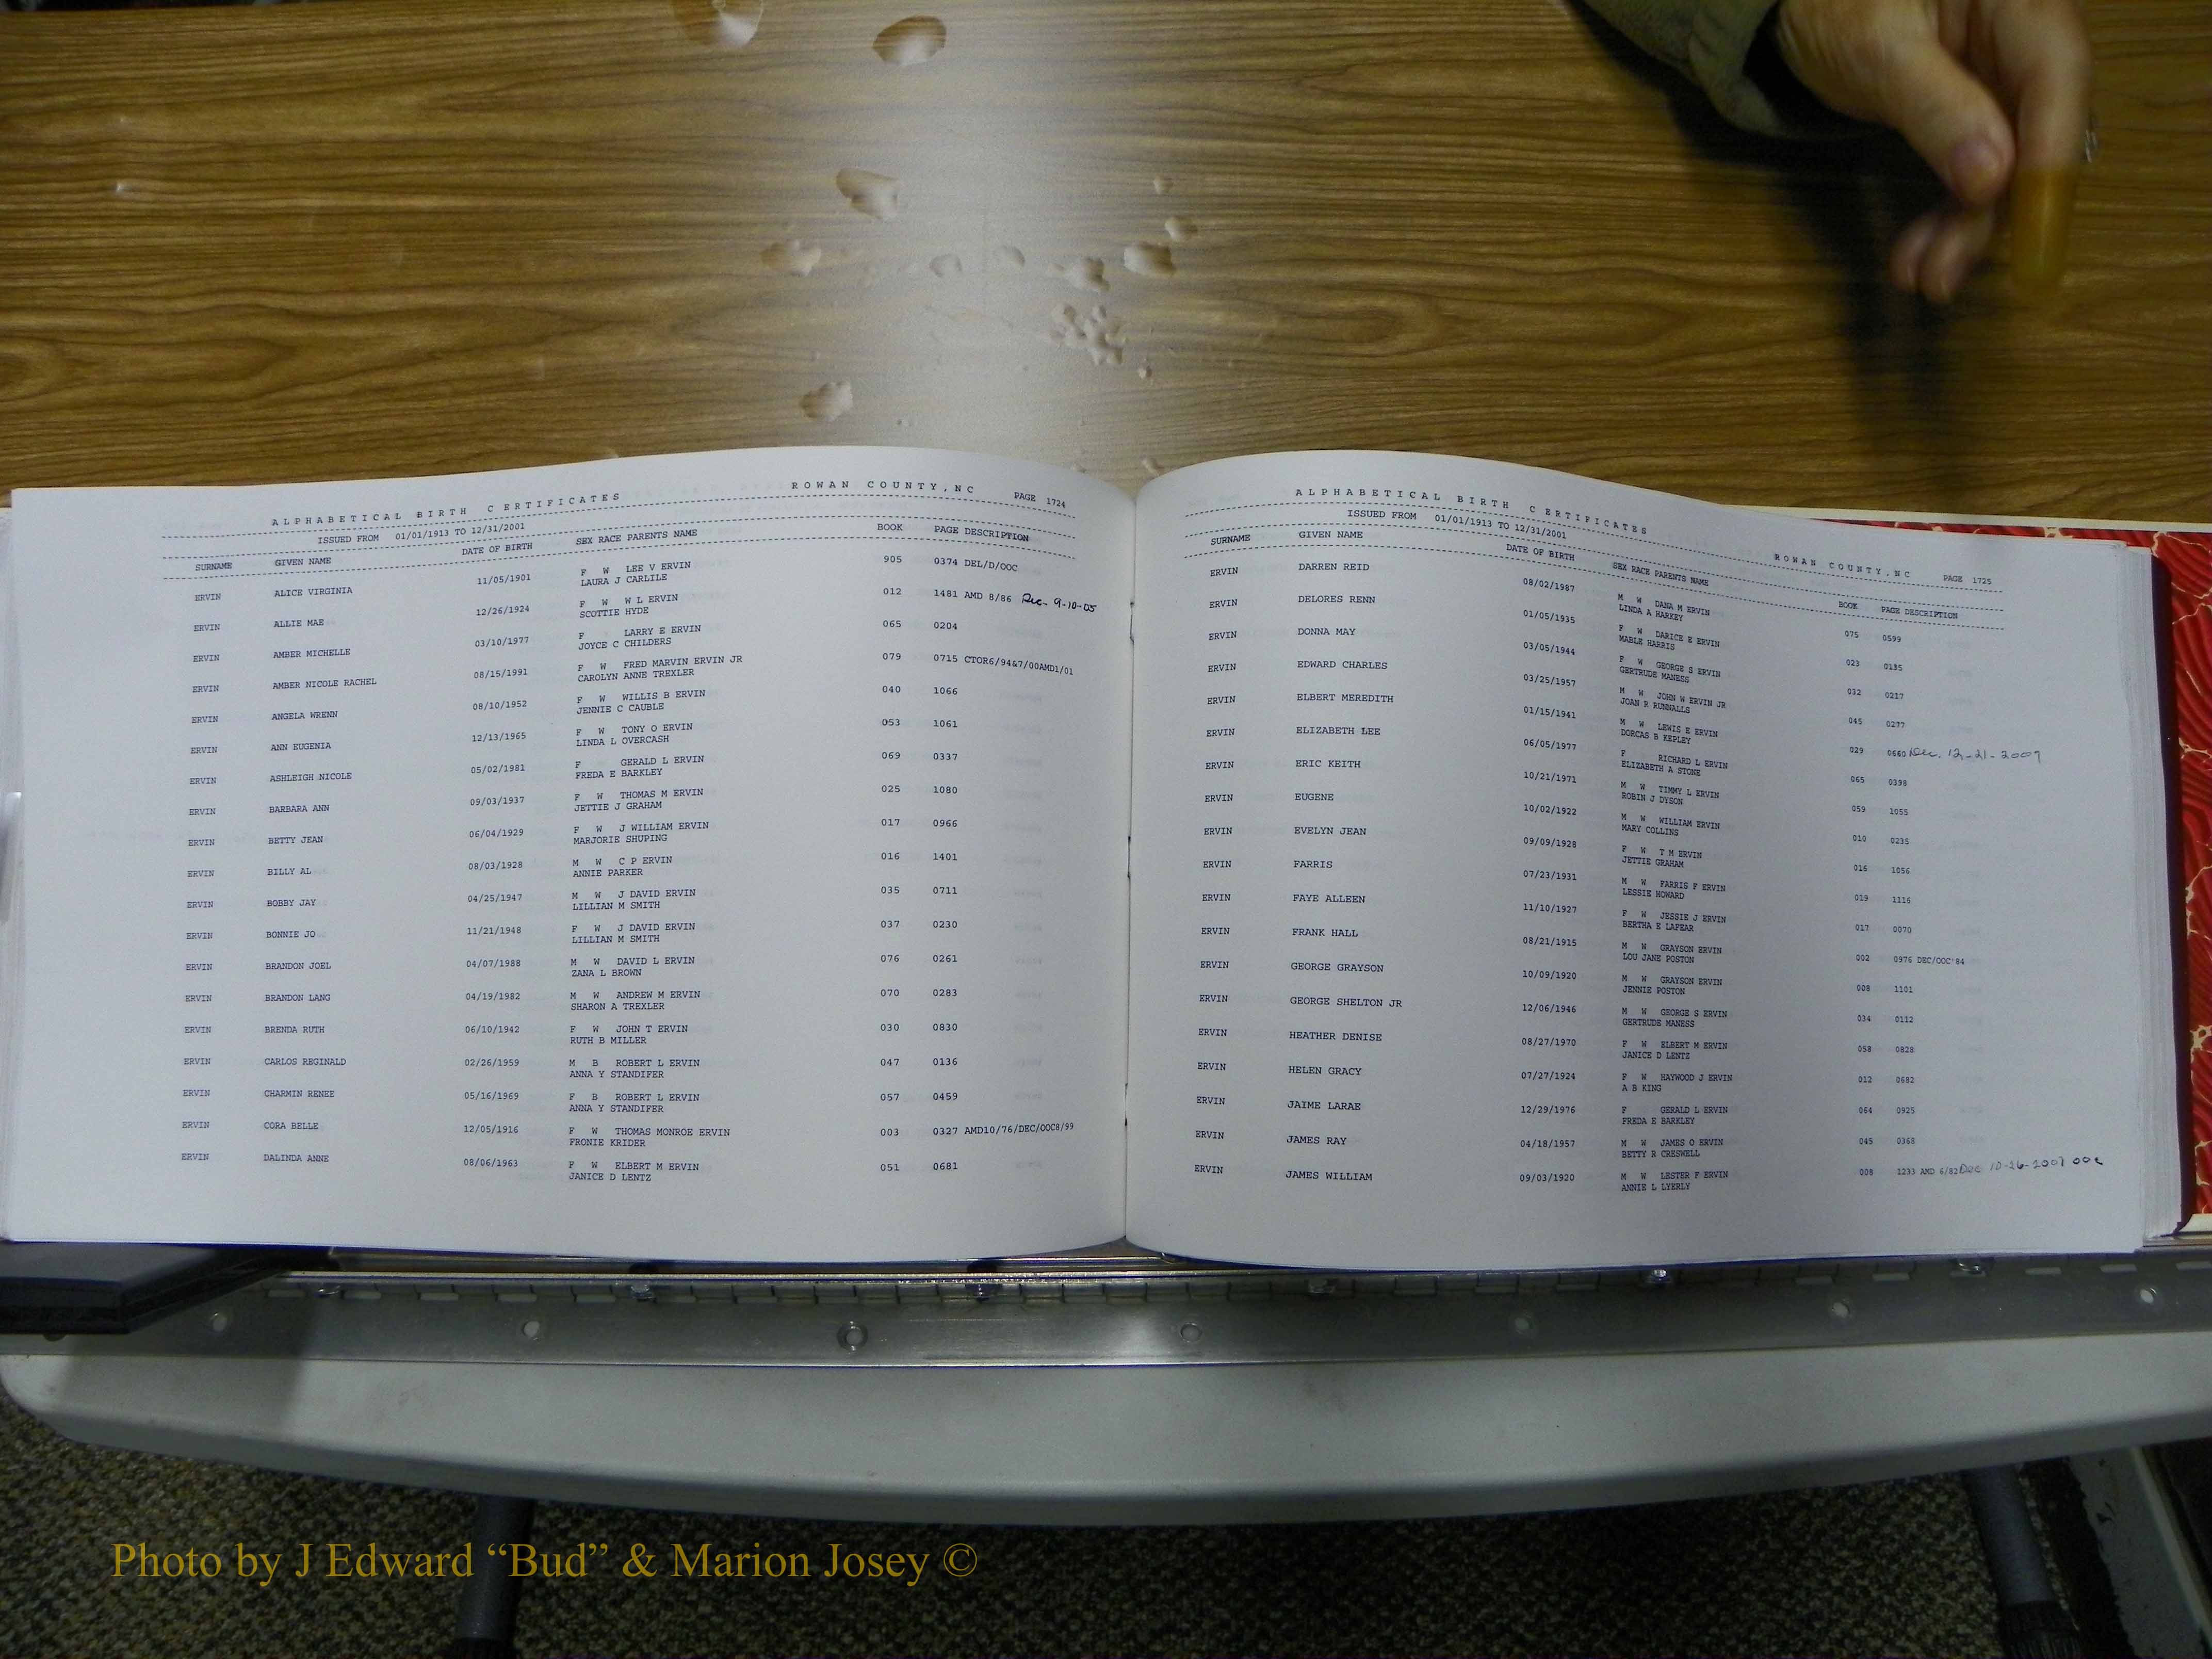 ALPHABETICAL BIRTH CERTIFICATES ROWAN COUNTY, NC PAGE 1724
ISSUED FROM 01/01/1913 TO 12/31/2001
SURNAME GIVEN NAME DATE OF BIRTH SEX RACE PARENTS NAME BOOK PAGE DESCRIPTION
ERVIN ALICE VIRGINIA 11/05/1901 F W LEE V ERVIN 905 0374 DEL/D/OOC
LAURA J CARLILE
ERVIN ALLIE MAE 12/26/1924 F W W L ERVIN 012 1481 AMD 8/86 Dec. 9-10-05
SCOTTIE HYDE
ERVIN AMBER MICHELLE 03/10/1977 F LARRY E ERVIN 065 0204
JOYCE C CHILDERS
ERVIN AMBER NICOLE RACHEL 08/15/1991 F W FRED MARVIN ERVIN JR 079 0715 CTOR6/94&7/00AMD1/01
CAROLYN ANNE TREXLER
ERVIN ANGELA WRENN 08/10/1952 F W WILLIS B ERVIN 040 1066
JENNIE C CAUBLE
ERVIN ANN EUGENIA 12/13/1965 F W TONY O ERVIN 053 1061
LINDA L OVERCASH
ERVIN ASHLEIGH NICOLE 05/02/1981 F GERALD L ERVIN 069 0337
FREDA E BARKLEY
ERVIN BARBARA ANN 09/03/1937 F W THOMAS M ERVIN 025 1080
JETTIE J GRAHAM
ERVIN BETTY JEAN 06/04/1929 F W J WILLIAM ERVIN 017 0966
MARJORIE SHUPING
ERVIN BILLY AL 08/03/1928 M W C P ERVIN 016 1401
ANNIE PARKER
ERVIN BOBBY JAY 04/25/1947 M W J DAVID ERVIN 035 0711
LILLIAN M SMITH
ERVIN BONNIE JO 11/21/1948 F W J DAVID ERVIN 037 0230
LILLIAN M SMITH
ERVIN BRANDON JOEL 04/07/1988 M W DAVID L ERVIN 076 0261
ZANA L BROWN
ERVIN BRANDON LANG 04/19/1982 M W ANDREW M ERVIN 070 0283
SHARON A TREXLER
ERVIN BRENDA RUTH 06/10/1942 F W JOHN T ERVIN 030 0830
RUTH B MILLER
ERVIN CARLOS REGINALD 02/26/1959 M B ROBERT L ERVIN 047 0136
ANNA Y STANDIFER
ERVIN CHARMIN RENEE 05/16/1969 F B ROBERT L ERVIN 057 0459
ANNA Y STANDIFER
ERVIN CORA BELLE 12/05/1916 F W THOMAS MONROE ERVIN 003 0327 AMD10/76/DEC/OOC8/99
FRONIE KRIDER
ERVIN DALINDA ANNE 08/06/1963 F W ELBERT M ERVIN 051 0681
JANICE D LENTZ
ALPHABETICAL BIRTH CERTIFICATES ROWAN COUNTY, NC PAGE 1725
ISSUED FROM 01/01/1913 TO 12/31/2001
SURNAME GIVEN NAME DATE OF BIRTH SEX RACE PARENTS NAME BOOK PAGE DESCRIPTION
ERVIN DARREN REID 08/02/1987 M W DANA M ERVIN 075 0599
LINDA A HARKEY
ERVIN DELORES RENN 01/05/1935 F W DARICE E ERVIN 023 0135
MABLE HARRIS
ERVIN DONNA MAY 03/05/1944 F W GEORGE S ERVIN 032 0217
GERTRUDE MANESS
ERVIN EDWARD CHARLES 03/25/1957 M W JOHN W ERVIN JR 045 0277
JOAN R RUNNALLS
ERVIN ELBERT MEREDITH 01/15/1941 M W LEWIS E ERVIN 029 0660 Dec. 12-21-2009
DORCAS B KEPLEY
ERVIN ELIZABETH LEE 06/05/1977 F RICHARD L ERVIN 065 0398
ELIZABETH A STONE
ERVIN ERIC KEITH 10/21/1971 M W TIMMY L ERVIN 059 1055
ROBIN J DYSON
ERVIN EUGENE 10/02/1922 M W WILLIAM ERVIN 010 0235
MARY COLLINS
ERVIN EVELYN JEAN 09/09/1928 F W T M ERVIN 016 1056
JETTIE GRAHAM
ERVIN FARRIS 07/23/1931 M W FARRIS F ERVIN 019 1116
LESSIE HOWARD
ERVIN FAYE ALLEEN 11/10/1927 F W JESSIE J ERVIN 017 0070
BERTHA E LAFEAR
ERVIN FRANK HALL 08/21/1915 M W GRAYSON ERVIN 002 0976 DEC/OOC'84
LOU JANE POSTON
ERVIN GEORGE GRAYSON 10/09/1920 M W GRAYSON ERVIN 008 1101
JENNIE POSTON
ERVIN GEORGE SHELTON JR 12/06/1946 M W GEORGE S ERVIN 034 0112
GERTRUDE MANESS
ERVIN HEATHER DENISE 08/27/1970 F W ELBERT M ERVIN 058 0828
JANICE D LENTZ
ERVIN HELEN GRACY 07/27/1924 F W HAYWOOD J ERVIN 012 0682
A B KING
ERVIN JAIME LARAE 12/29/1976 F GERALD L ERVIN 064 0925
FREDA E BARKLEY
ERVIN JAMES RAY 04/18/1957 M W JAMES O ERVIN 045 0368
BETTY R CRESWELL
ERVIN JAMES WILLIAM 09/03/1920 M W LESTER F ERVIN 008 1233 AMD 6/82 Dec 10-26-2009 OOC
ANNIE L LYERLY
Photo by J Edward “Bud” & Marion Josey ©